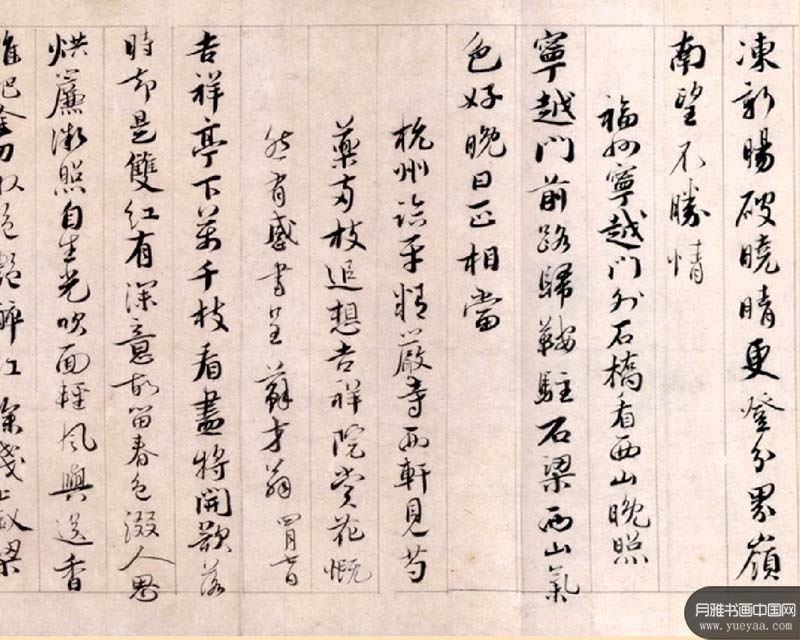 凍新暘破曉晴更登分界嶺
南望不勝情
福州寧越門外石橋看西山晚照
寧越門前路歸鞍駐石梁西山氣
色好晚日正相當
杭州臨平精嚴寺西軒見芍
藥兩枝追想吉祥院賞花慨
然有感書呈蘇才翁
吉祥亭下萬千枝看盡將開欲落
時却是雙紅有深意故留春色綴人思
烘簾微照自生光吹面輕風與送香
誰把金刀收絕艷醉紅深淺上釵梁
月雅书画中国网
www.yueyaa.com